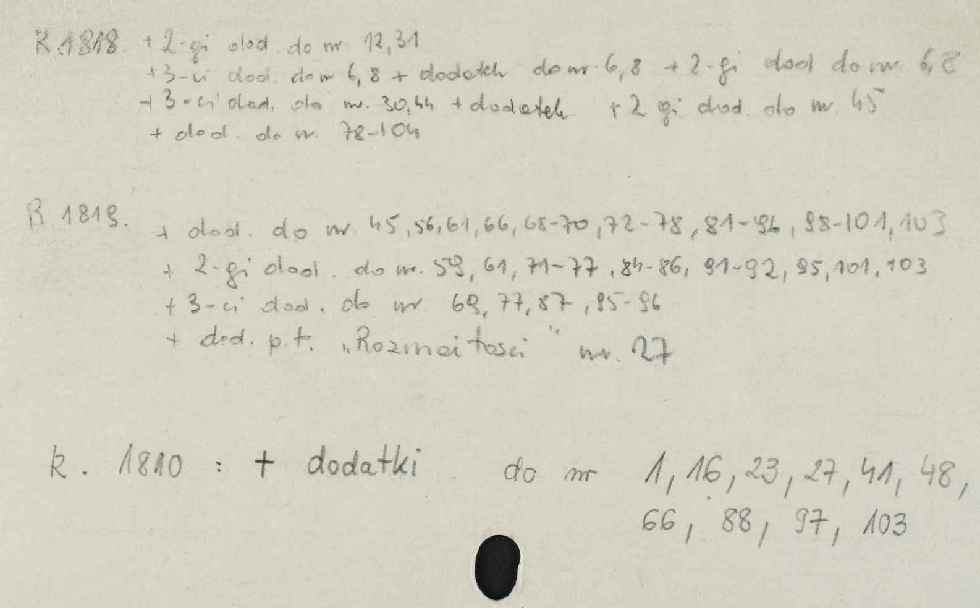 R.1818. + 2-gi dod. do nr 12,31
+3-ci dod. do nr 6, 8 + dodatek do nr. 6, 8 + 2-gi dod do nr. 6, 8
+ 3-ci dod. do nr. 30,44 + dodatek + 2 gi dod. do nr. 45
+ dod. do nr. 78-104
R 1819. + dod. do nr. 45, 56, 61, 66, 68-70, 72-78, 81-96, 98-101, 103
+ 2-gi dod. do nr. 59, 61, 71-77, 84-86, 91-92, 95, 101, 103
+ 3-ci dod. do nr 69, 77, 87, 95-96
+ dod. p.t. „Rozmaitości" nr. 27
R. 1810 : + dodatki do nr 1, 16, 23, 27, 41, 48,
66, 88, 97, 103